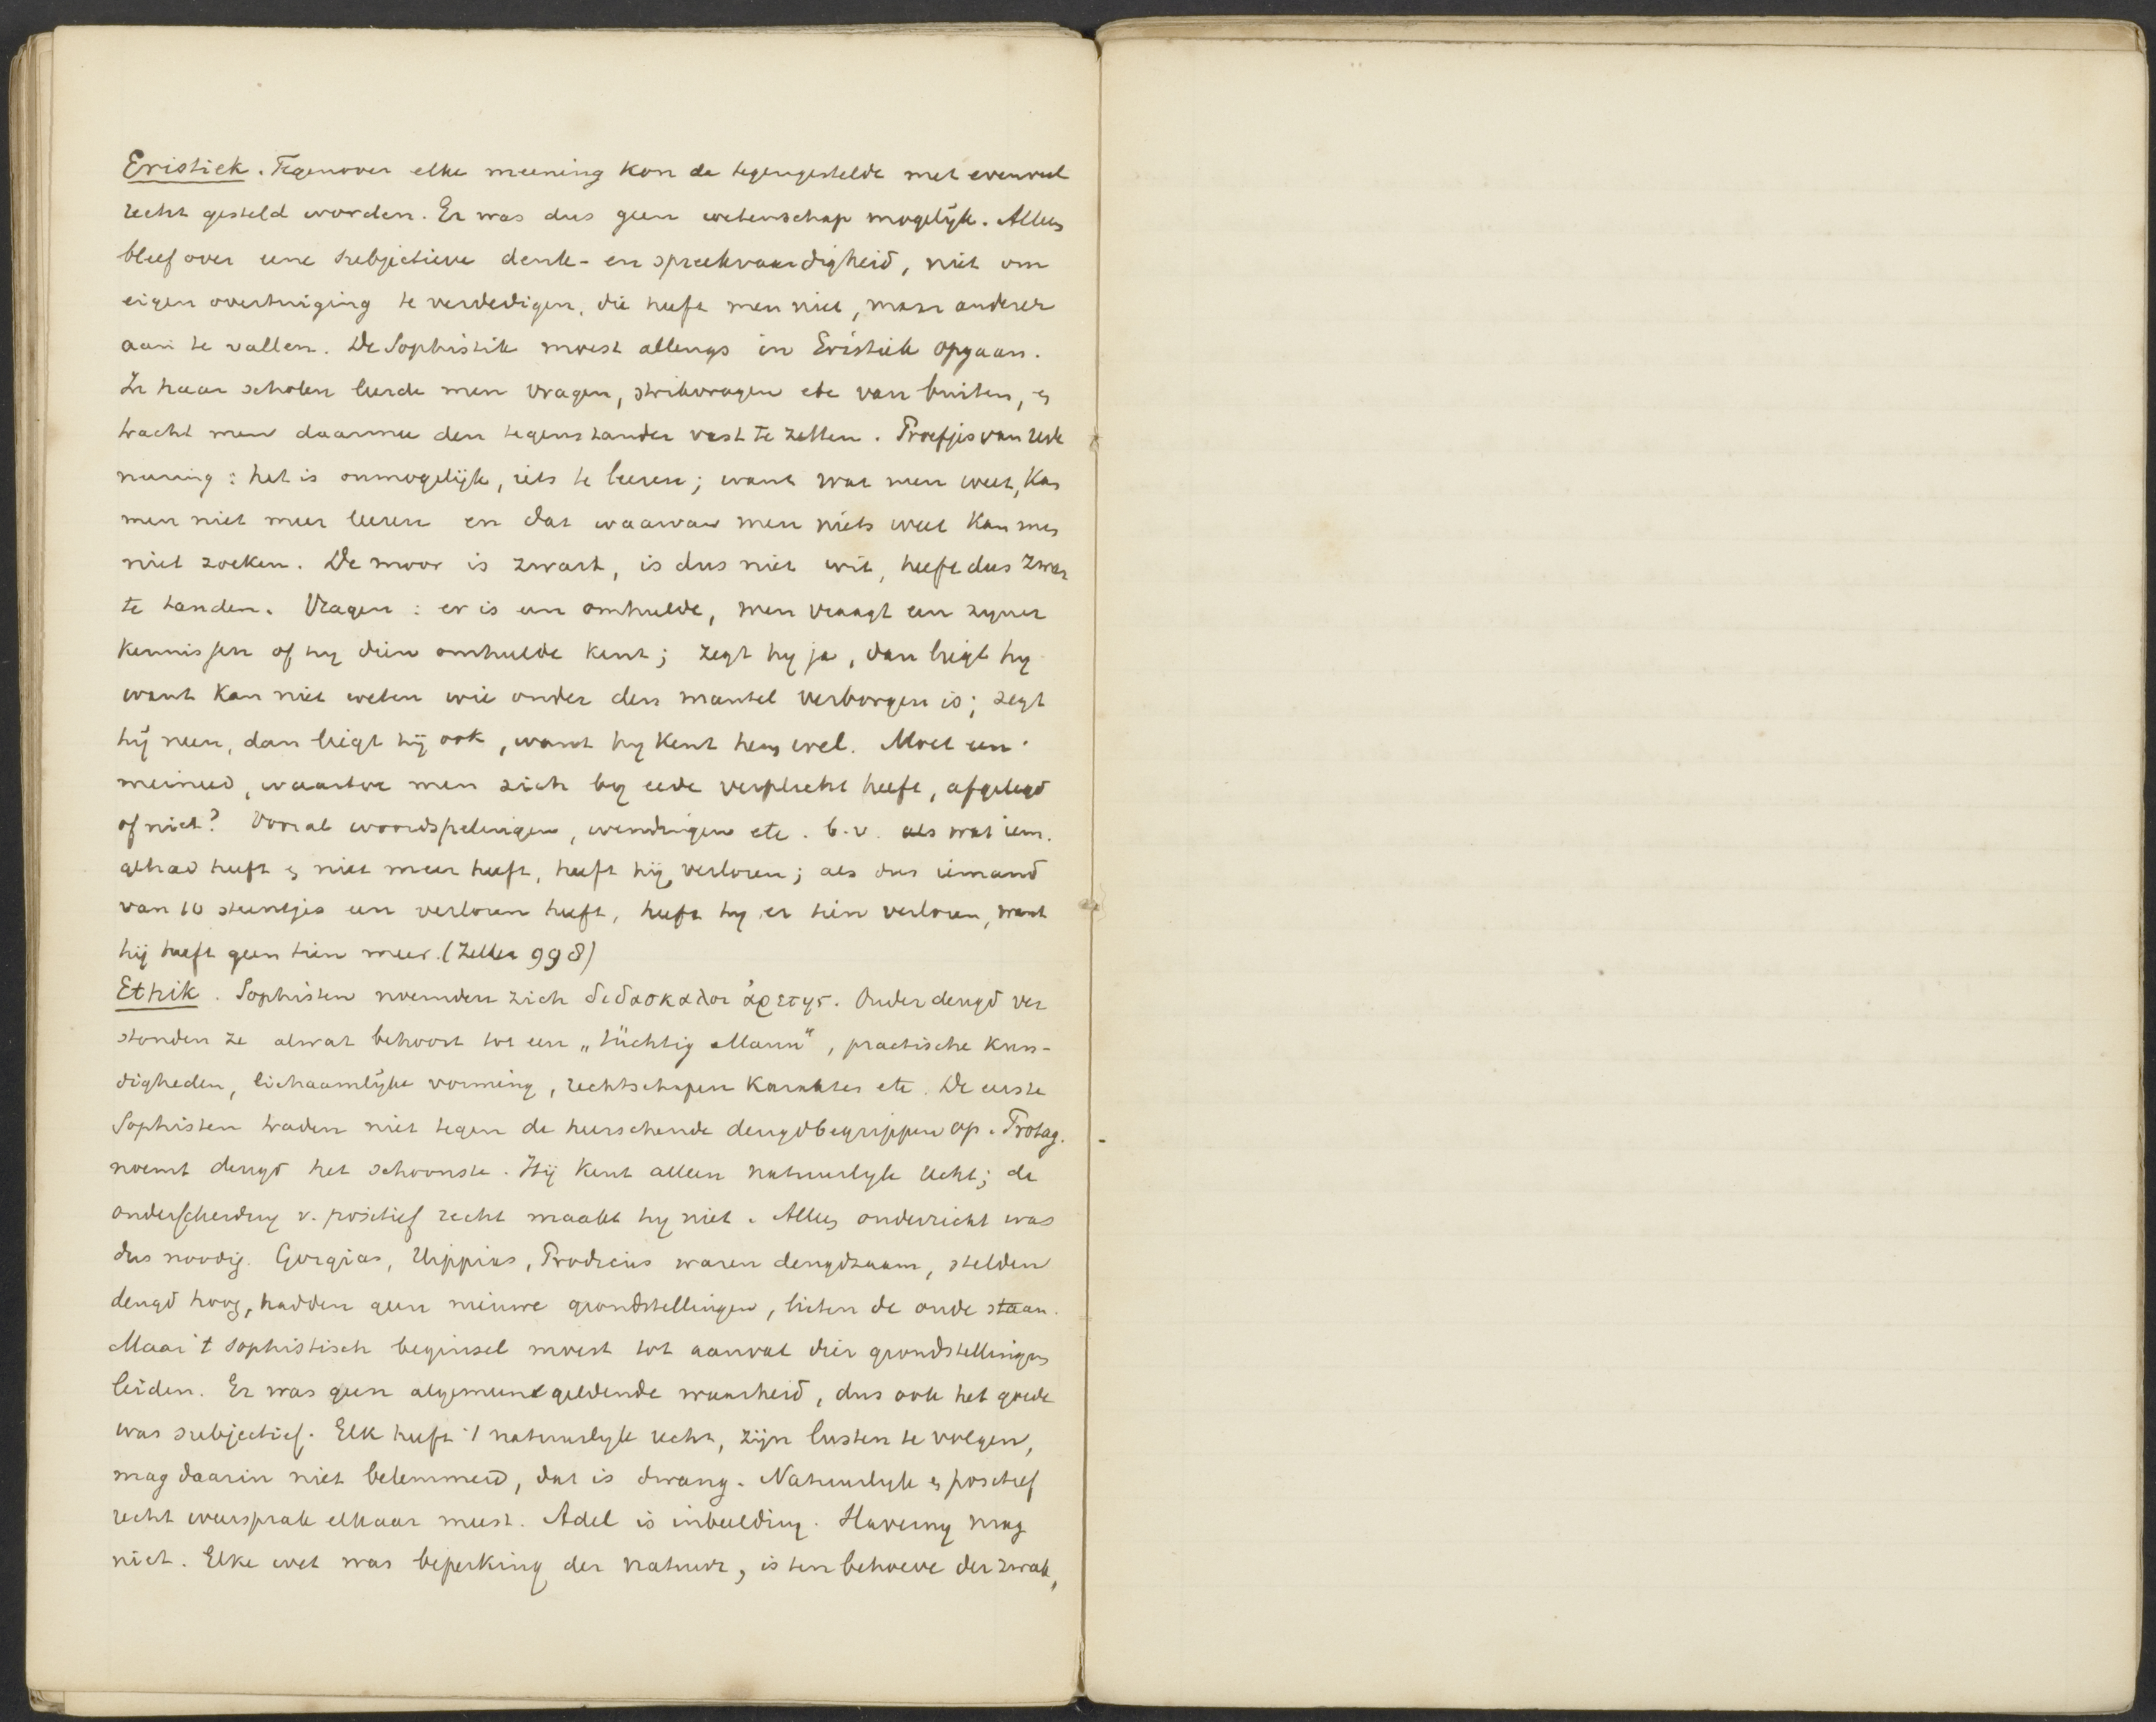 Eristiek. Tegenover elke meening kon de tegengestelde met evenveel
recht gesteld worden. Er was dus geen wetenschap mogelijk. Alleen
bleef over eene subjectieve denk- en spreekvaardigheid, niet om
eigen overtuiging te verdedigen, die heeft men niet, maar anderer
aan te vallen. De Sophistik moest allengs in Eristiek opgaan.
In haar scholen leerde men vragen, strikvragen etc van buiten, en
tracht men daarmee den tegenstander vast te zetten. Proefjes van rede
neering: het is onmogelijk, iets te leeren; want wat men weet, kan
men niet meer leeren en dat waarvan men niets weet kan men
niet zoeken. De moor is zwart, is dus niet wit, heeft dus zwar
te tanden. Vragen: er is een omhulde, men vraagt een zyner
kennissen of hy dien omhulde kent; zegt hy ja, dan liegt hy
want kan niet weten wie onder den mantel verborgen is; zegt
hij neen, dan liegt hij ook, want hy kent hem wel. Moet een
meineed, waartoe men zich by eede verplicht heeft, afgelegd
of niet? Vooral woordspelingen, wendingen etc. b.v. als wat iem.
gehad heeft en niet meer heeft, heeft hij verloren; als dus iemand
van 10 steentjes een verloren heeft, heeft hy er tien verloren, want
hij heeft geen tien meer. (Zeller 998)
Ethik. Sophisten noemden zich διδασκαλοι ἀρετης. Onder deugd ver
stonden ze alwat behoort tot een „tüchtig Mann", practische kun-
digheden, lichaamlijke vorming, rechtschapen karakter etc. De eerste
Sophisten traden niet tegen de heerschende deugdbegrippen op. Protag.
noemt deugd het schoonste. Hij kent alleen natuurlyk recht; de
onderscheiding v. positief recht maakt hy niet. Alleen onderricht was
dus noodig. Gorgias, Hippias, Prodicus waren deugdzaam, stelden
deugd hoog, hadden geen nieuwe grondstellingen, lieten de oude staan.
Maar 't sophistisch beginsel moest tot aanval dier grondstellingen
leiden. Er was geen algemeen geldende waarheid, dus ook het goede
was subjectief. Elk heeft 't natuurlyk recht, zijn lusten te volgen,
mag daarin niet belemmerd, dat is dwang. Natuurlyk en positief
recht weersprak elkaar meest. Adel is inbeelding. Slaverny mag
niet. Elke wet was beperking der natuur, is ten behoeve der zwak,